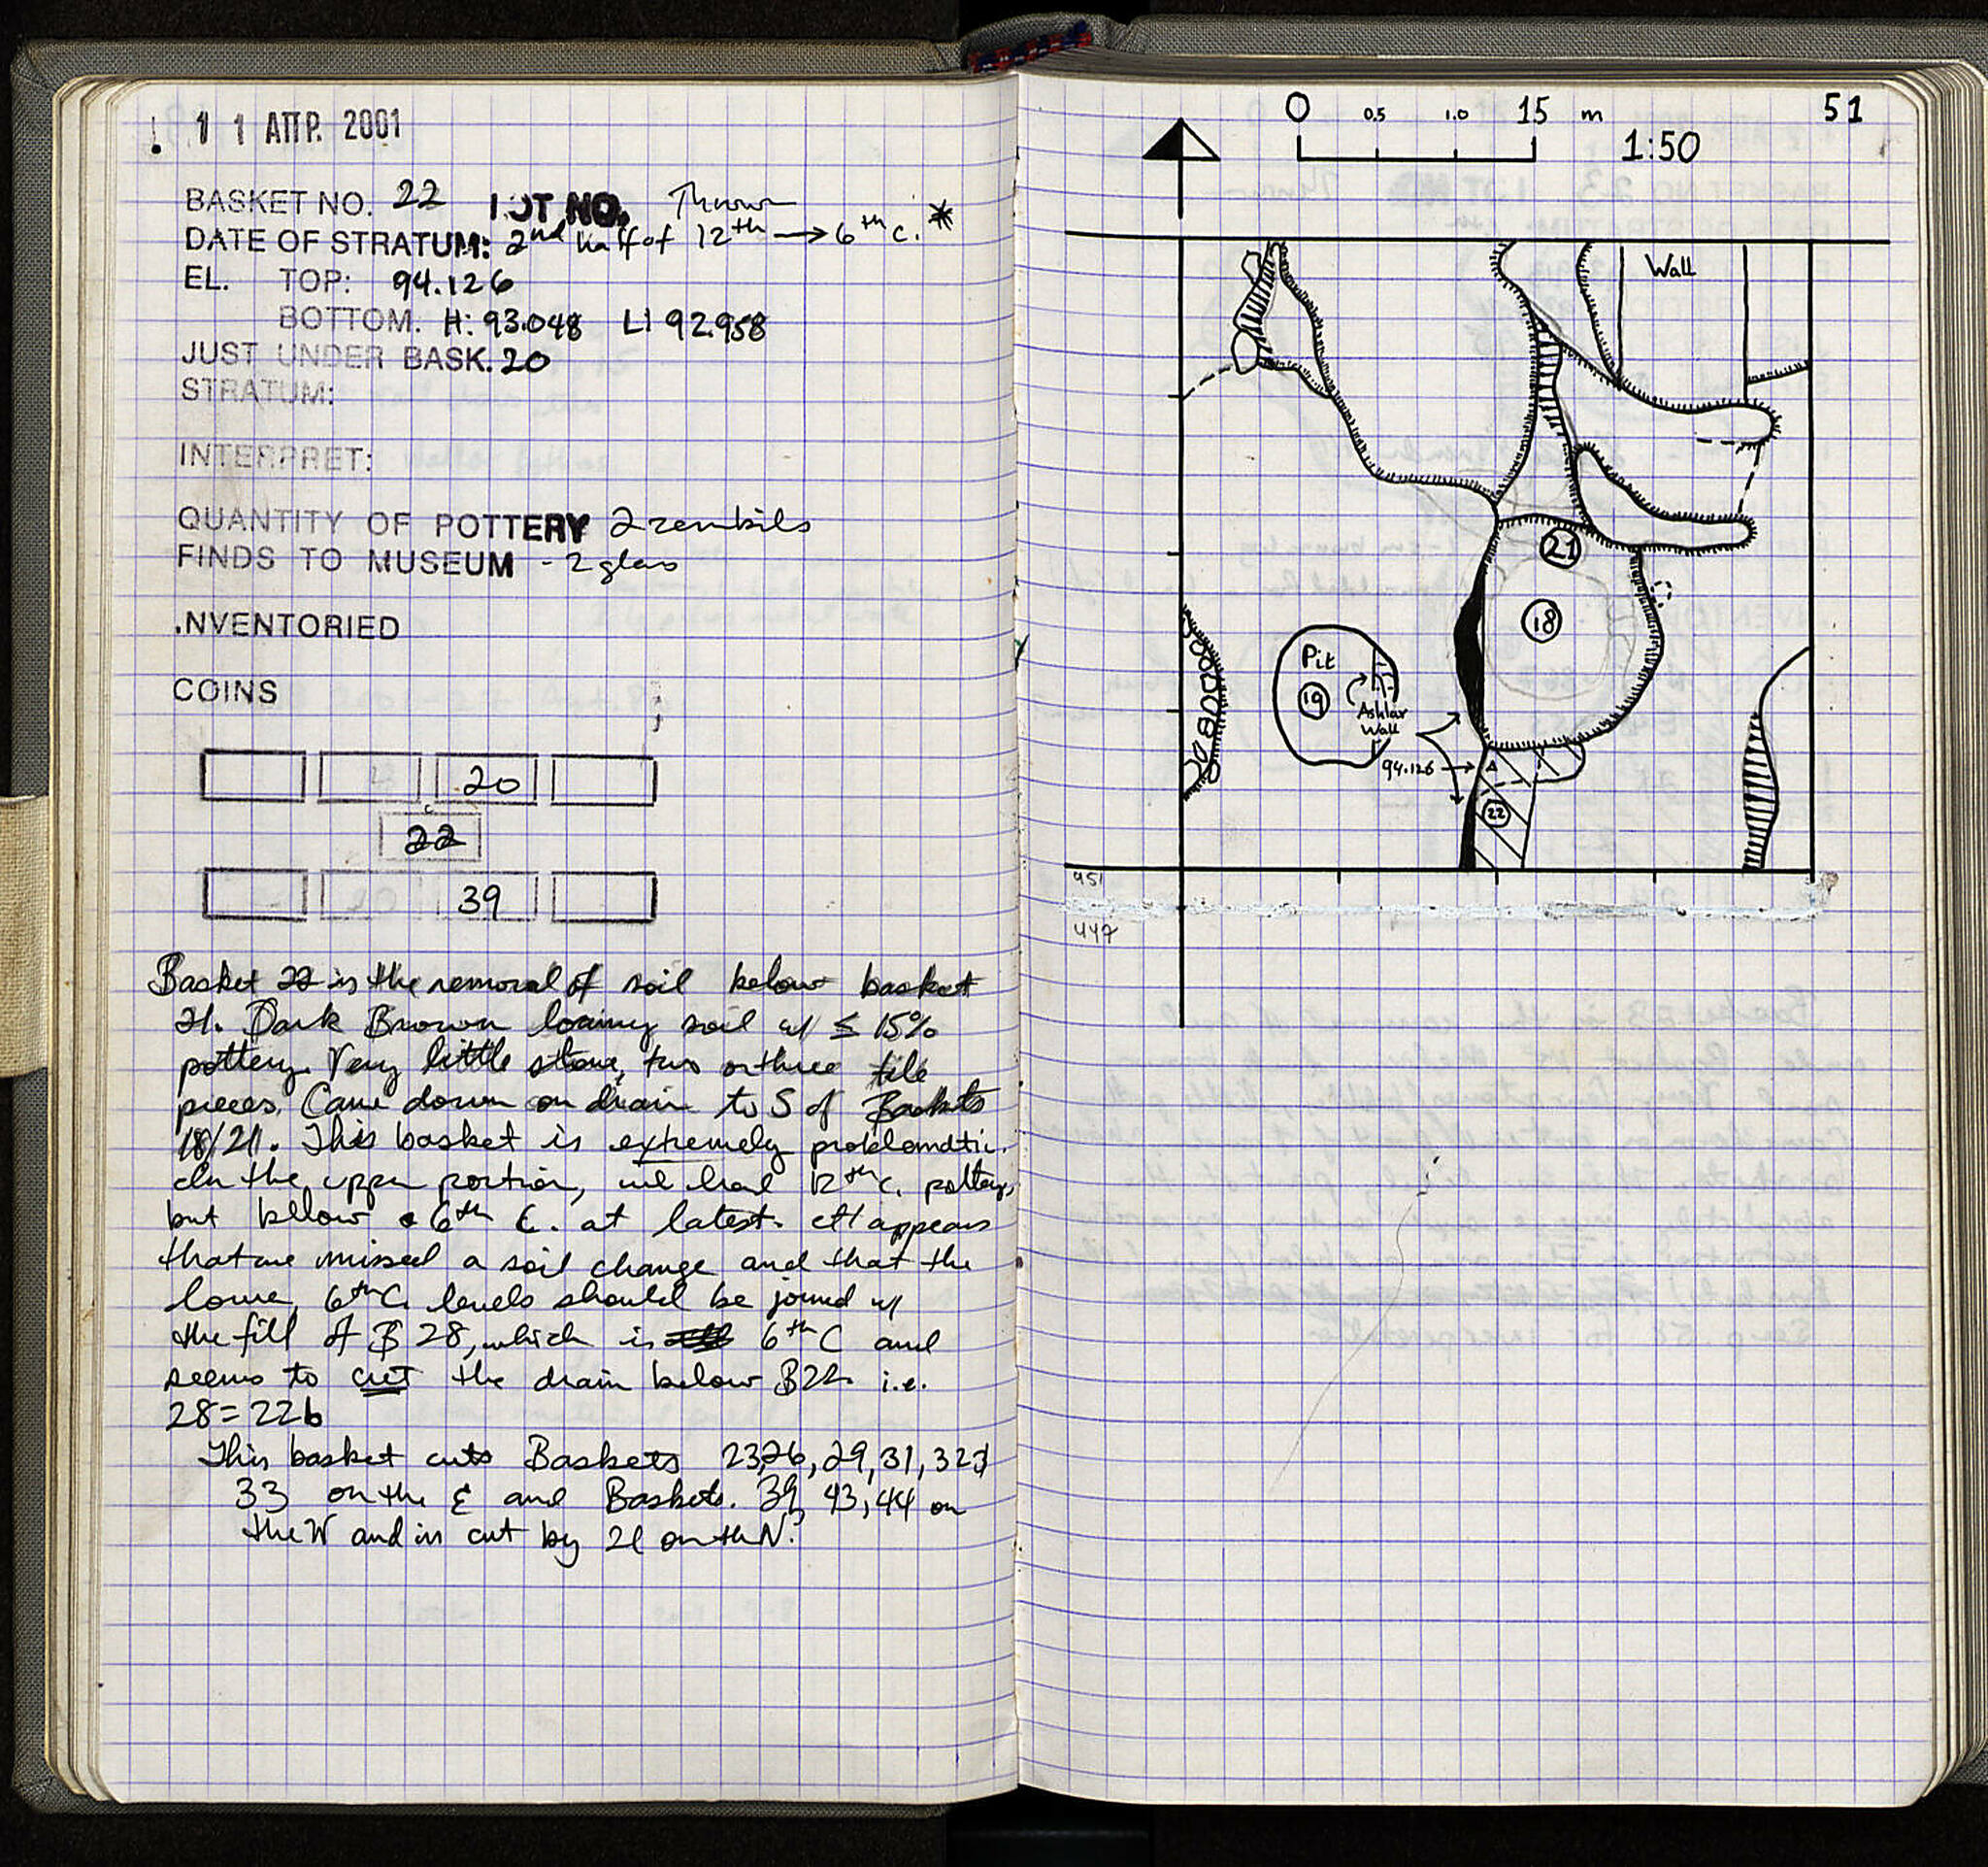 1 1 ΑΠΡ. 2001
BASKET NO. 22 LOT NO. Thrown
DATE OF STRATUM: 2nd half of 12th → 6th c. *
EL. TOP: 94.126
BOTTOM. H: 93.048 L: 92.958
JUST UNDER BASK. 20
STRATUM:
INTERPRET:
QUANTITY OF POTTERY 2 zembils
FINDS TO MUSEUM - 2 glass
.NVENTORIED
COINS
20
22
39
Basket 22 is the removal of soil below basket
21. Dark Brown loamy soil w/ ≤ 15%
pottery. Very little stone, two or three tile
pieces. Came down on drain to S of Baskets
18/21. This basket is extremely problematic.
In the upper portion, we had 12th c. pottery,
but below 6th C. at latest. It appears
that we missed a soil change and that the
lower, 6th C. levels should be joined w/
the fill of B 28, which is 6th C and
seems to cut the drain below B22 i.e.
28=22b
This basket cuts Baskets 23, 26, 29, 31, 32,
33 on the E and Baskets. 39, 43, 44 on
the W and is cut by 21 on the N.
51
0 0.5 1.0 15 m
1:50
Wall
21
18
Pit
19
Ashlar
Wall
94.126
22
951
447